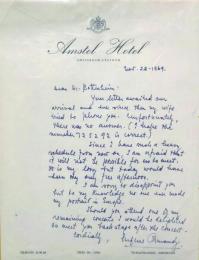 Amstel Hotel
AMSTERDAM
Nov. 28-1969.
Dear Mr. Bottenheim:
Your letter awaited our
arrival and ever since then my wife
tried to phone you. Unfortunately,
there was no answer. (I hope the
number 735292 is correct.)
Since I have such a heavy
schedule from now on, I am afraid that
it will not be possible for us to meet.
It is my loss, but today would have
been my only free afternoon.
I am sorry to disappoint you
but to my knowledge no one ever made
my portrait in Europe.
Should you attend one of our
remaining concerts I would be delighted
to meet you backstage after the concert.
Cordially,
Eugene Ormandy